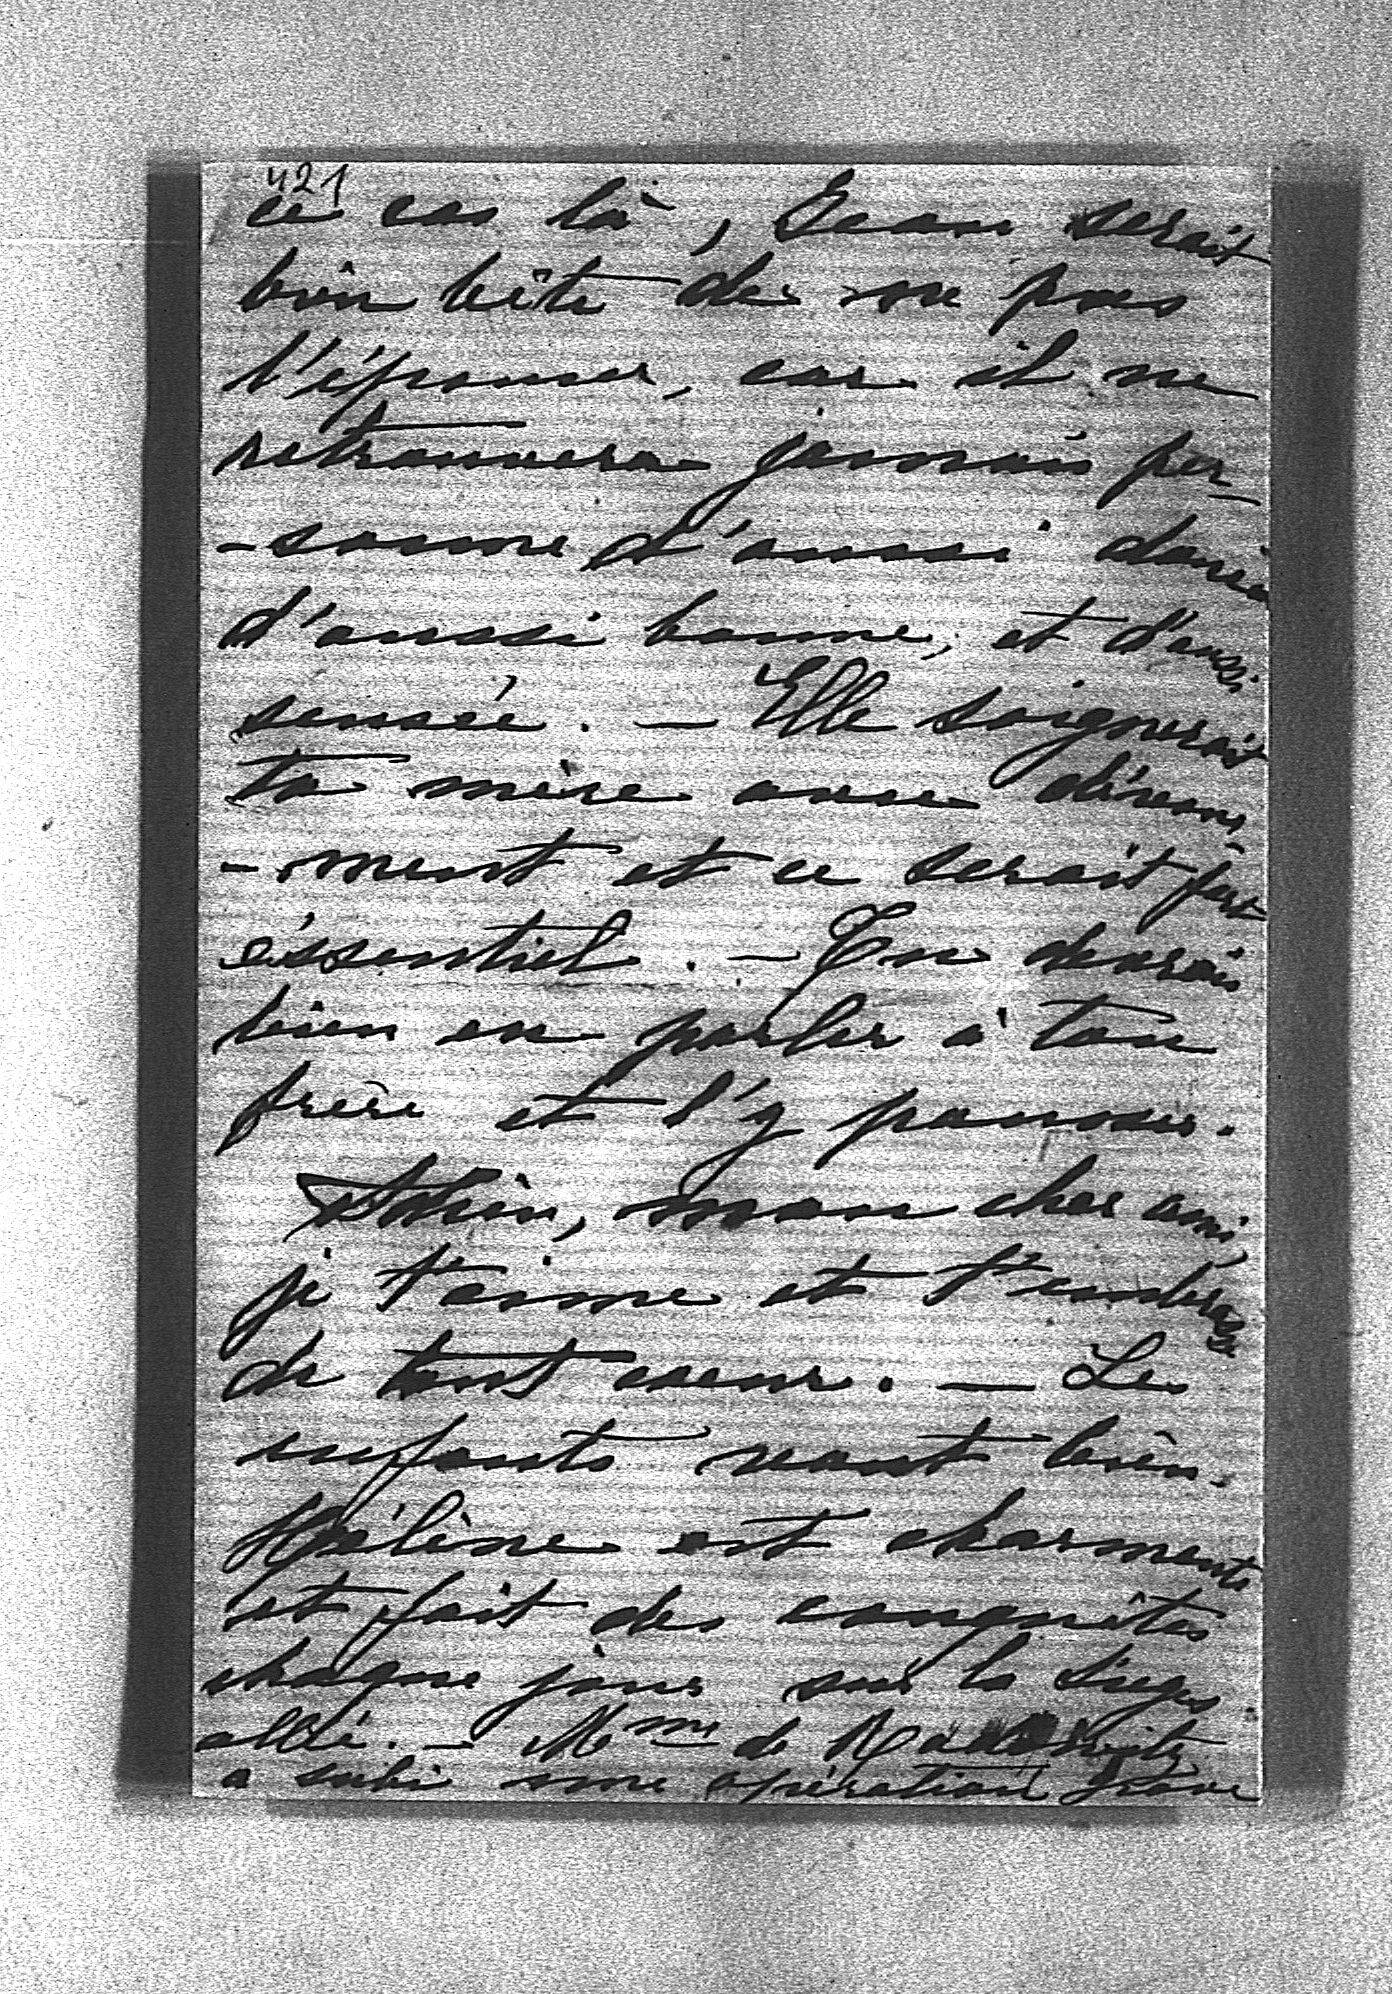 421
ce cas là, Jean serait
bien bête de ne pas
l'épouser, car il ne
retrouvera jamais per-
-sonne d'aussi
d'aussi bonne, et d'aussi
sensée. — Elle soignerait
ta mère avec dévoue
-ment et ce serait fort
éssentiel. — Tu devrais
bien en parler à ton
frère et l'y pousser.
Adieu, mon cher ami,
je t'aime et t'embrasse
de tout coeur. — Les
enfants vont bien.
Hélène est charmante
et fait des conquêtes
chaque jour sur la Sieges
allée. — Mme de
a subi une opération grave